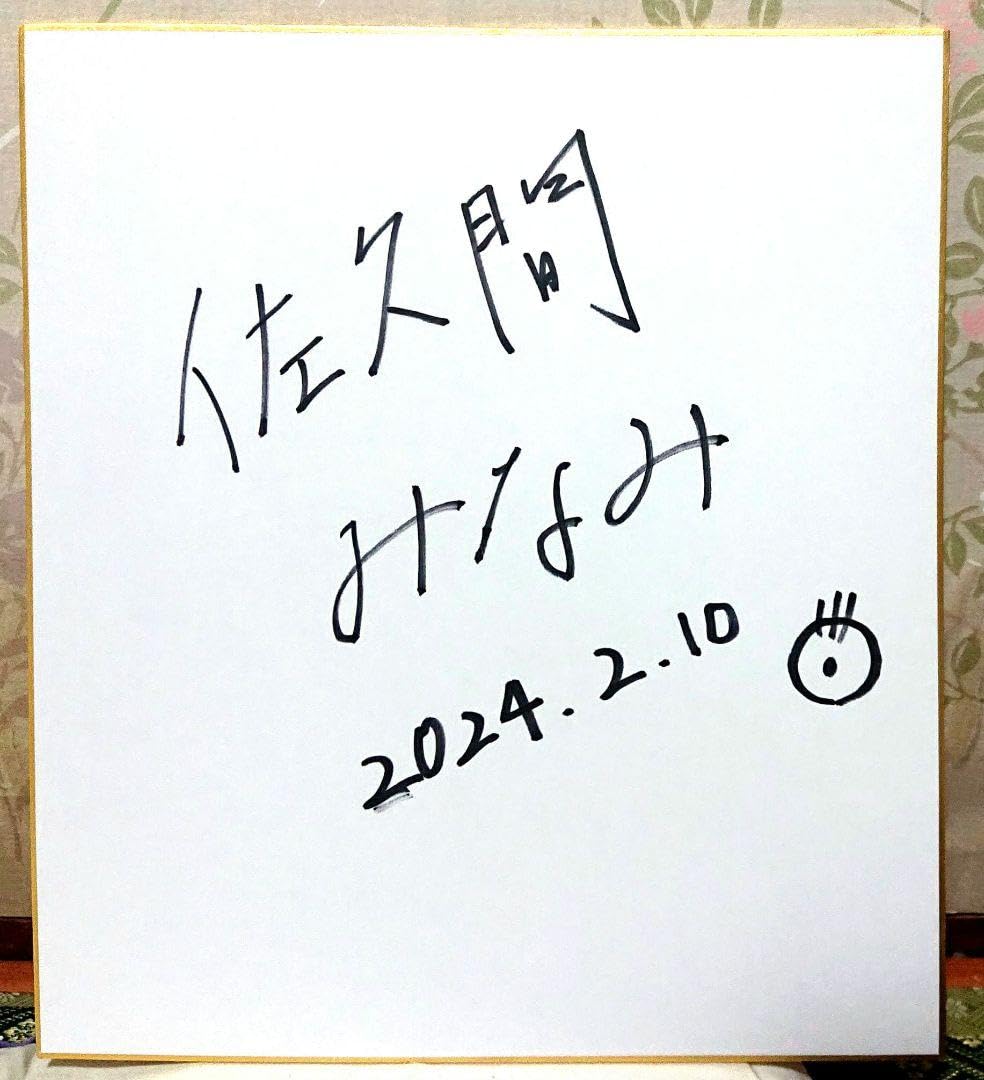 佐久間
みなみ
2024.2.10